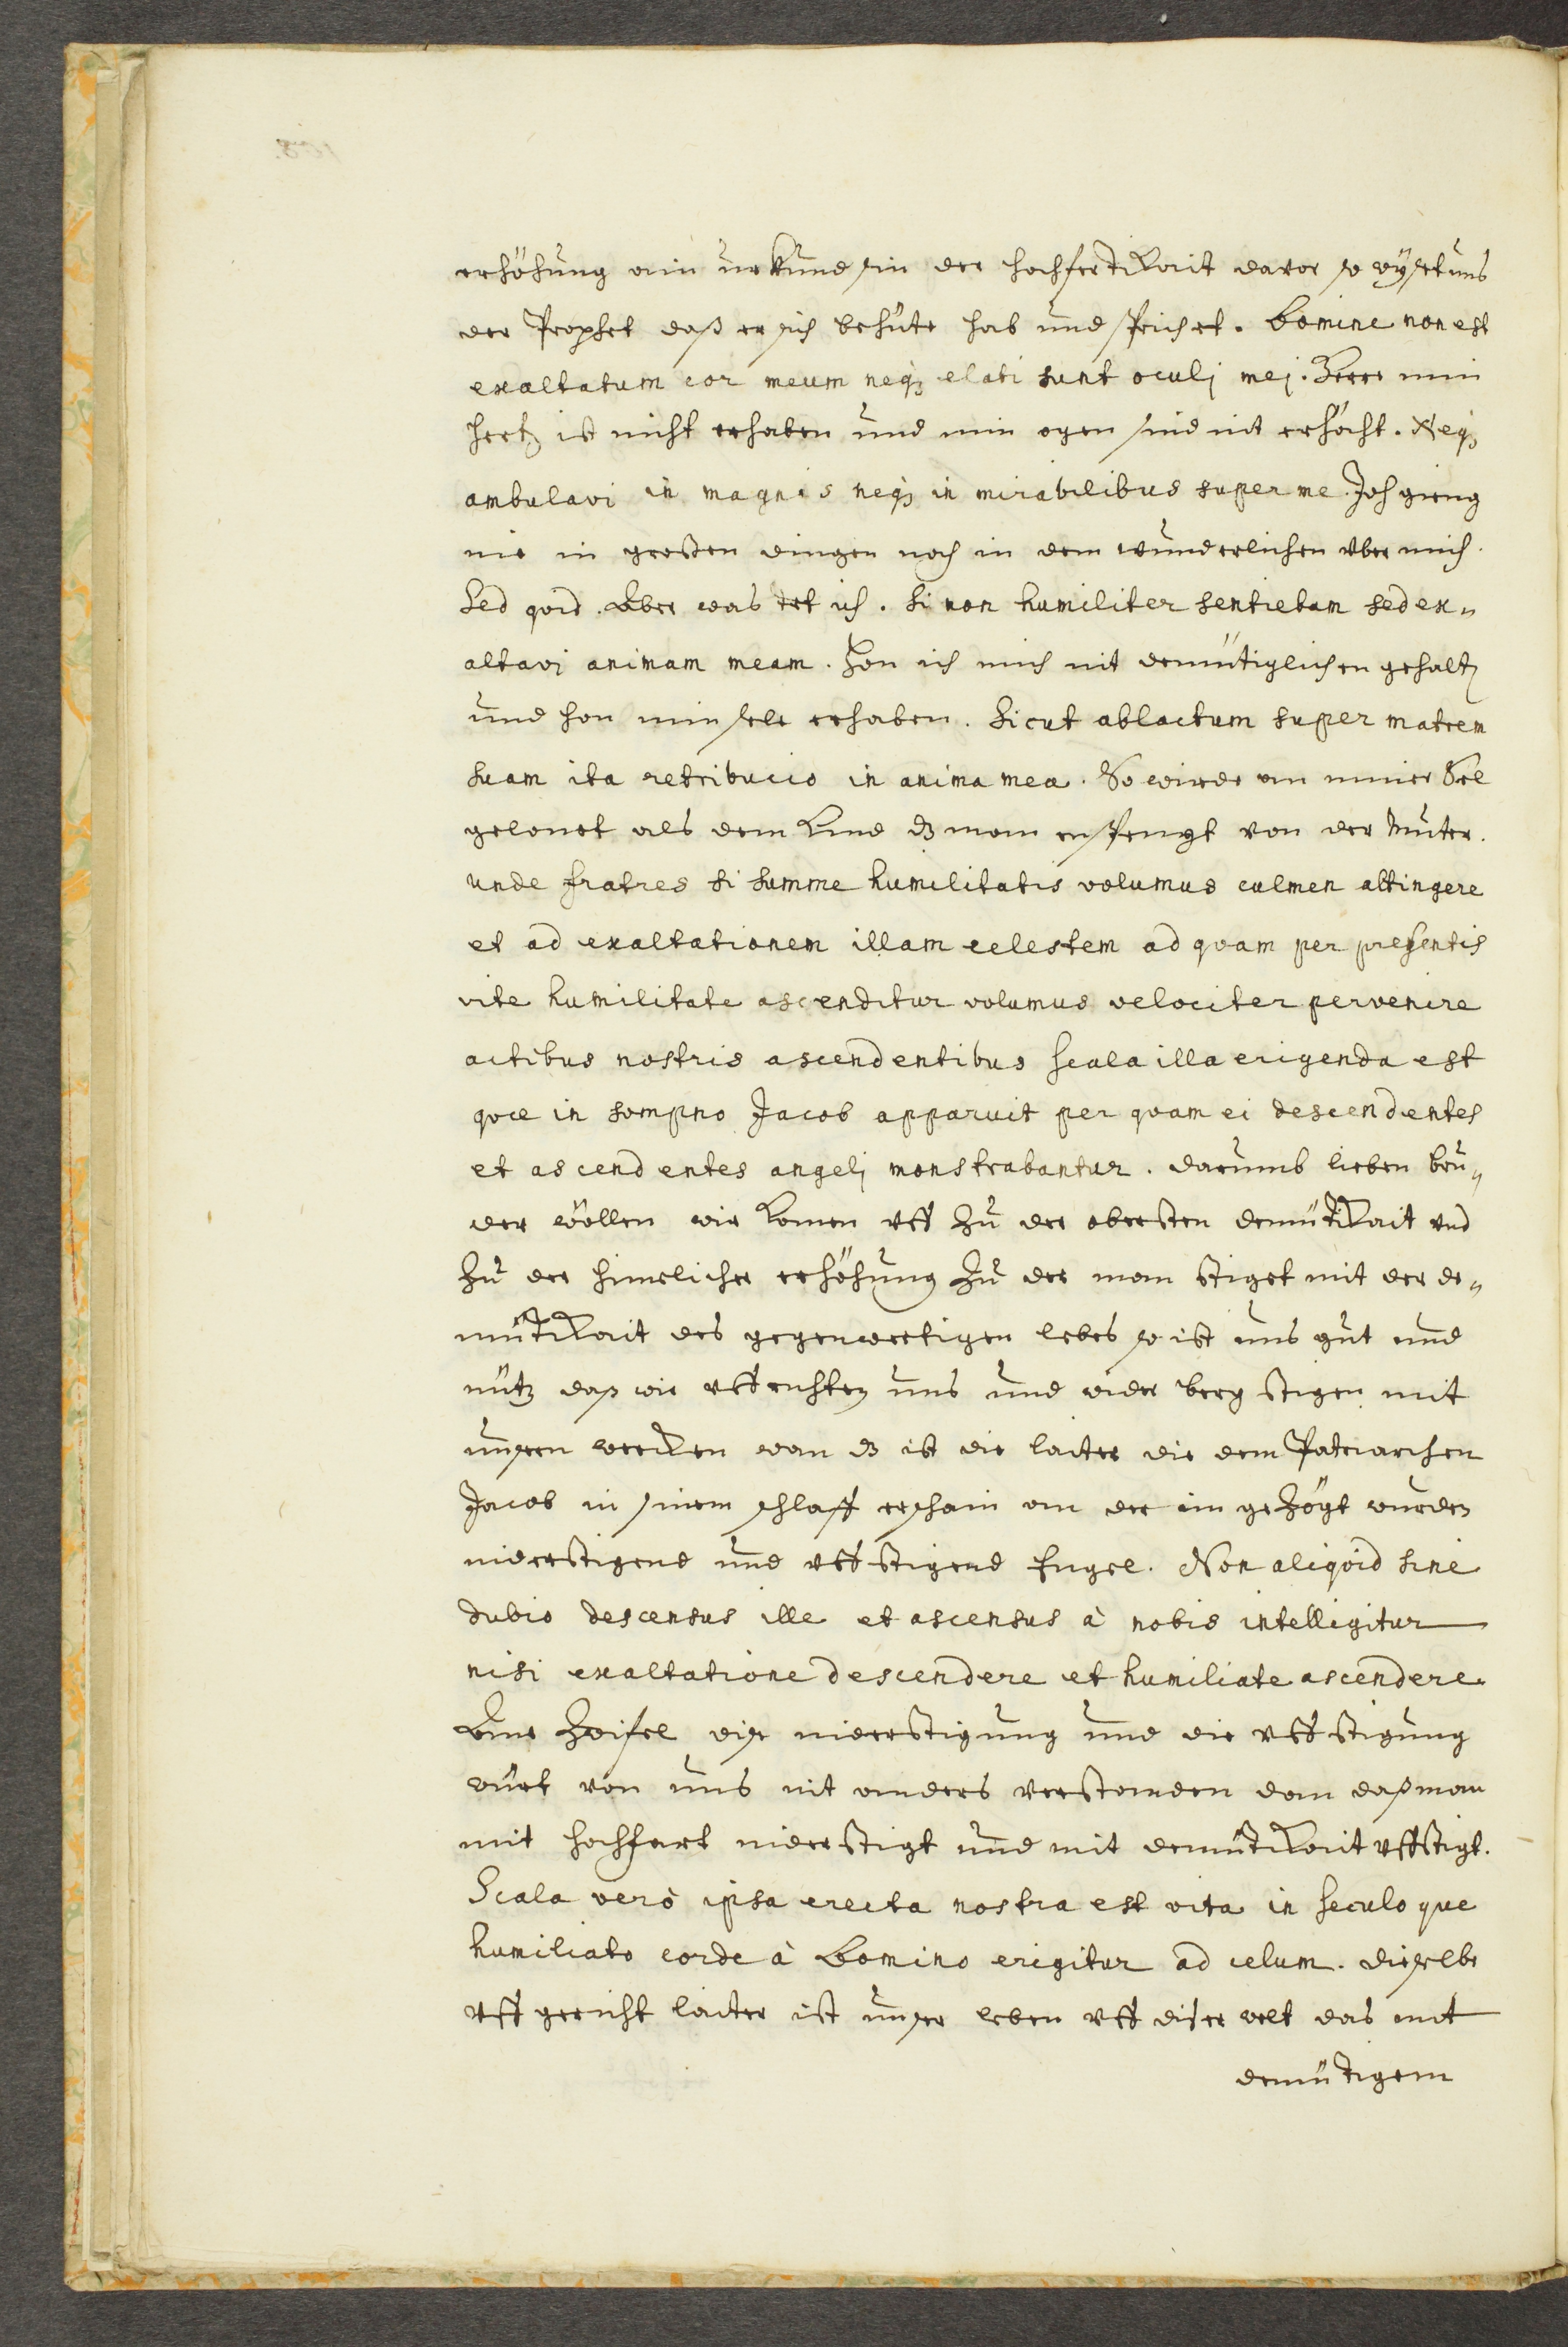 erhöhung ain urkund sin der hochfertikait davor so wÿset uns
der Prophet daß er sich behüte hab und sprichet. Domine non est
exaltatum cor meum neqȝ elati sunt oculj mej. Herre min
hertz ist nicht erhaben und min ogen sind nit erhöcht. Neqȝ
ambulavi in magnis neqȝ in mirabilibus super me. Ich gieng
nie in großen dingen noch in dem wunderlichen uber mich.
Sed qvid. Aber was tet ich. Si non humiliter sentiebam sed ex„
altavi animam meam. Hon ich mich nit demütiglichen gehaltȝ
und hon min sele erhaben. Sicut ablactum super matrem
suam ita retribucio in anima mea. So wirde an miner Sel
gelonet als dem kind dȝ man enspengt von der Muter.
unde fratres si summe humilitatis volumus culmen attingere
et ad exaltationem illam celestem ad qvam per presentis
vite humilitate ascenditur volumus velociter pervenire
actibus nostris ascendentibus scala illa erigenda est
qvæ in sompno Jacob apparuit per qvam ei descendentes
et ascendentes angelj monstrabantur. darumb lieben brü„
der wöllen wir komen vff zu der obersten demütikait vnd
zu der himelicher erhöhung zu der man stiget mit der de„
mütikait des gegenwertigen lebes so ist uns gut und
nütz daß wir vffrichten uns und wider berg stigen mit
unseren wercken wan dȝ ist die laiter die dem Patriarchen
Jacob in sinem schlaff erschain an der im gezögt wurden
niderstigend und vffstigend Engel. Non aliqvid sine
dubio descensus ille et ascensus à nobis intelligitur
nisi exaltatione descendere et humiliate ascendere.
Ane zwifel dise niderstigung und die vffstigung
würt von uns nit anders verstanden dan daß man
mit hochfart niderstigt und mit demütikait vffstigt.
Scala verò ipsa erecta nostra est vita in seculo que
humiliato corde à Domino erigitur ad celum. dieselbe
vffgericht laiter ist unser leben vff diser welt das mit
demütigem